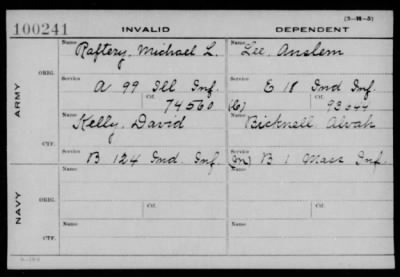 (3-M-5)
100241 INVALID DEPENDENT
ARMY
ORIG.
Name Raftery, Michael L. Name Lee, Anslem
Service A 99 Ill Inf. Service E 18 Ind Inf.
Ctf. 74560 (C) Ctf.
CTF.
Name Kelly, David Name Bicknell Alvah
Service B 124 Ind. Inf. Service (M) B 1 Mass Inf.
NAVY
ORIG.
Name Name
Ctf. Ctf.
CTF.
Name Name